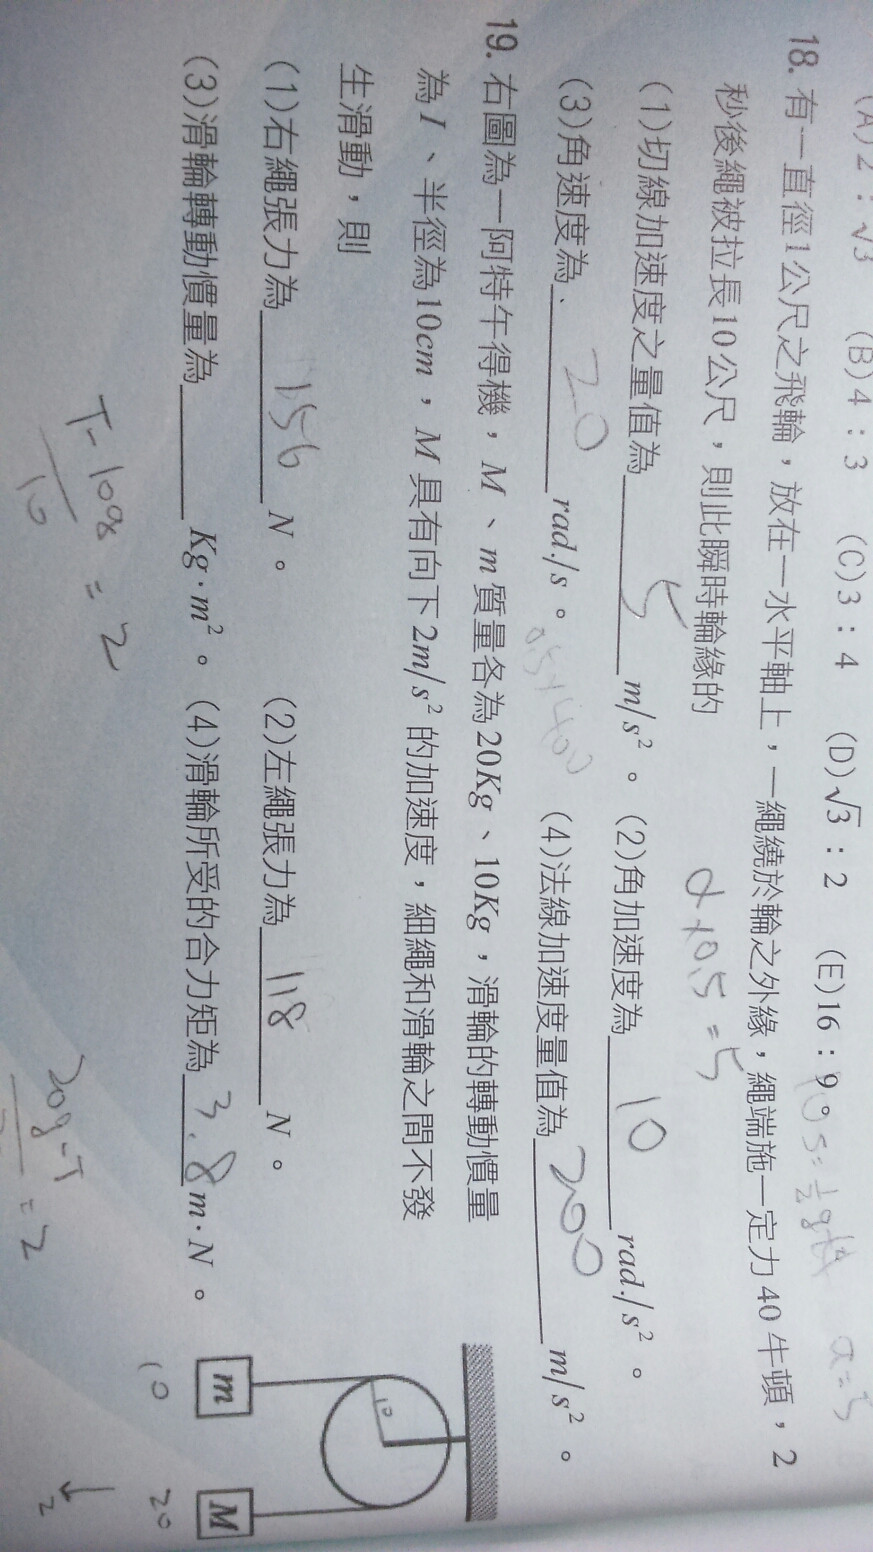 (A)2：√3 (B)4：3 (C)3：4 (D)√3：2 (E)16：9。
10 s=½gt² a=5
18. 有一直徑1公尺之飛輪，放在一水平軸上，一繩繞於輪之外緣，繩端施一定力40牛頓，2
秒後繩被拉長10公尺，則此瞬時輪緣的
α×0.5=5
(1)切線加速度之量值為 5 m/s²。 (2)角加速度為 10 rad./s²。
(3)角速度為 20 rad./s。 (4)法線加速度量值為 200 m/s²。
0.5×400
19. 右圖為一阿特午得機，M、m質量各為20Kg、10Kg，滑輪的轉動慣量
為I、半徑為10cm，M具有向下2m/s²的加速度，細繩和滑輪之間不發
生滑動，則
(1)右繩張力為 156 N。 (2)左繩張力為 118 N。
(3)滑輪轉動慣量為 Kg·m²。 (4)滑輪所受的合力矩為 3.8 m·N。
10
m M
10 20
2
T-10g
10
=2
20g-T
=2